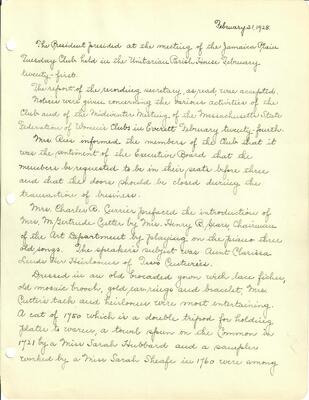 February 21, 1928.
The President presided at the meeting of the Jamaica Plain
Tuesday Club held in the Unitarian Parish House February
twenty-first.
The report of the recording secretary as read was accepted.
Notices were given concerning the various activities of the
Club and of the Midwinter Meeting of the Massachusetts State
Federation of Women's Clubs in Everett February twenty-fourth.
Mrs. informed the members of the Club that it
was the sentiment of the Executive Board that the
members be requested to be in their seats before three
and that the doors should be closed during the
transaction of business.
Mrs. Charles B. Currier prefaced the introduction of
Mrs. M. Gertrude Cutter by Mrs. Henry B. Chairman
of the Art Department by playing on the piano three
old songs. The speaker's subject was Aunt Clarissa
Lends our Heirlooms of Two Centuries.
Dressed in an old brocaded gown with lace fichu,
old mosaic brooch, gold earrings and bracelet Mrs.
Cutter's talk and heirlooms were most entertaining.
A cat of 1750 which is a double tripod for holding
plates to warm, a towel spun on the Common in
1721 by a Miss Sarah Hubbard and a sampler
worked by a Miss Sarah Sheafe in 1760 were among